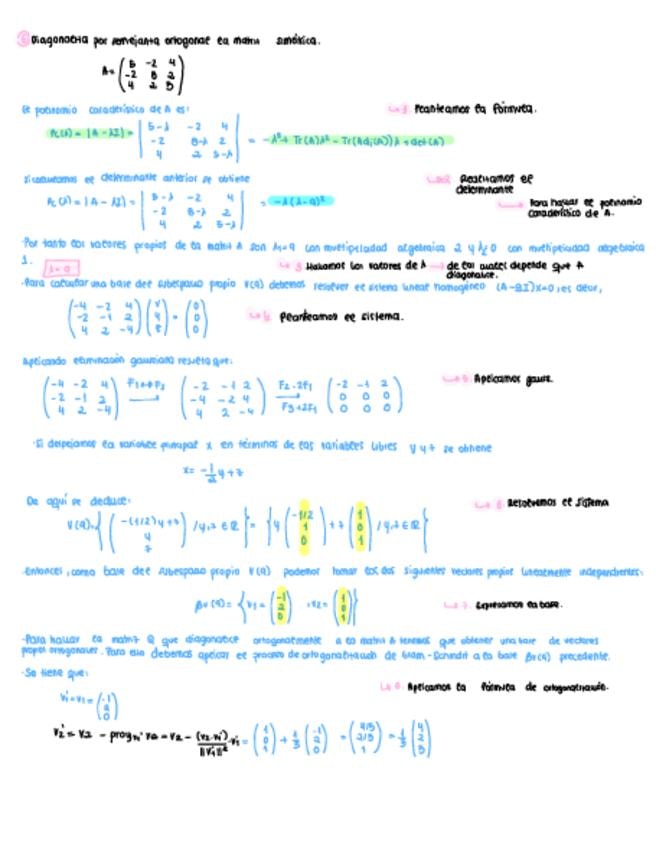 Diagonaliza por semejanza ortogonal la matriz simétrica.
A = ( 5 -2 4
-2 8 2
4 2 5 )
El polinomio característico de A es:
↳1 Planteamos la fórmula.
PA(λ) = |A - λI| = | 5-λ -2 4
-2 8-λ 2
4 2 5-λ | = -λ³ + Tr(A)λ² - Tr(Adj(A))λ + det(A)
Si calculamos el determinante anterior se obtiene
↳2 Realizamos el determinante
PA(λ) = |A - λI| = | 5-λ -2 4
-2 8-λ 2
4 2 5-λ | = -λ(λ-9)²
Para hallar el polinomio característico de A.
·Por tanto los valores propios de la matriz A son λ1=9 con multiplicidad algebraica 2 y λ2=0 con multiplicidad algebraica
1. λ = 0
↳3 Hallamos los valores de λ → de los cuales depende que A diagonalice.
·Para calcular una base del subespacio propio V(9) debemos resolver el sistema lineal homogéneo (A-9I)X=0, es decir,
( -4 -2 4
-2 -1 2
4 2 -4 ) ( x
y
z ) = ( 0
0
0 )
↳4 Planteamos el sistema.
Aplicando eliminación gaussiana resulta que:
( -4 -2 4
-2 -1 2
4 2 -4 ) F1↔F2 → ( -2 -1 2
-4 -2 4
4 2 -4 ) F2-2F1 → F3+2F1 ( -2 -1 2
0 0 0
0 0 0 )
↳5 Aplicamos gauss.
·Si despejamos la variable principal x en términos de las variables libres y y z se obtiene
x = -1/2 y + z
De aquí se deduce:
↳6 Resolvemos el sistema
V(9) = { ( -(1/2)y+z
y
z ) / y,z ∈ R } = { y ( -1/2
1
0 ) + z ( 1
0
1 ) / y,z ∈ R }
·Entonces, como base del subespacio propio V(9) podemos tomar los dos siguientes vectores propios linealmente independientes:
βV(9) = { v1 = ( -1
2
0 ), v2 = ( 1
0
1 ) }
↳7 Expresamos la base.
·Para hallar la matriz Q que diagonalice ortogonalmente a la matriz A tenemos que obtener una base de vectores
propios ortogonales. Para ello debemos aplicar el proceso de ortogonalización de Gram-Schmidt a la base βV(9) precedente.
·Se tiene que:
↳8 Aplicamos la fórmula de ortogonalización.
v1' = v1 = ( -1
2
0 )
v2' = v2 - proyv1' v2 = v2 - (v2·v1')/||v1'||² · v1' = ( 1
0
1 ) + 1/5 ( -1
2
0 ) = ( 4/5
2/5
1 ) = 1/5 ( 4
2
5 )